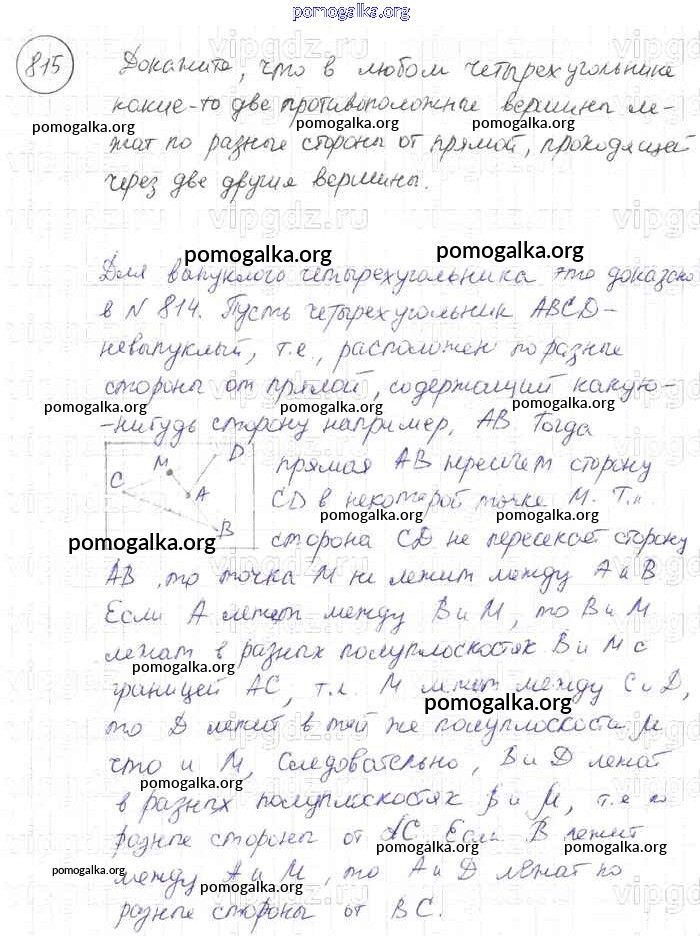 pomogalka.org
815 Докажите, что в любом четырехугольнике
какие-то две противоположные вершины ле-
pomogalka.org pomogalka.org pomogalka.org
жат по разные стороны от прямой, проходящей
через две другие вершины.
pomogalka.org pomogalka.org
Для выпуклого четырехугольника это доказано
в N 814. Пусть четырехугольник ABCD-
невыпуклый, т.е., расположен по разные
стороны от прямой, содержащий какую-
pomogalka.org pomogalka.org pomogalka.org
-нибудь сторону например, AB Тогда
C M D A B
прямая AB пересечет сторону
CD в некоторой точке M. Т.к.
pomogalka.org pomogalka.org
сторона CD не пересекает сторону
pomogalka.org
AB, то точка M не лежит между A и B
Если A лежит между B и M, то B и M
лежат в разных полуплоскостях B и M с
pomogalka.org
границей AC, т.к. M лежит между C и D,
pomogalka.org
то D лежит в той же полуплоскости
что и M, Следовательно, B и D лежат
pomogalka.org pomogalka.org
в разных полуплоскостях B и M, т.е по
разные стороны от AC. Если B лежит
pomogalka.org pomogalka.org
между A и M, то A и D лежат по
pomogalka.org pomogalka.org pomogalka.org
разные стороны от BC.